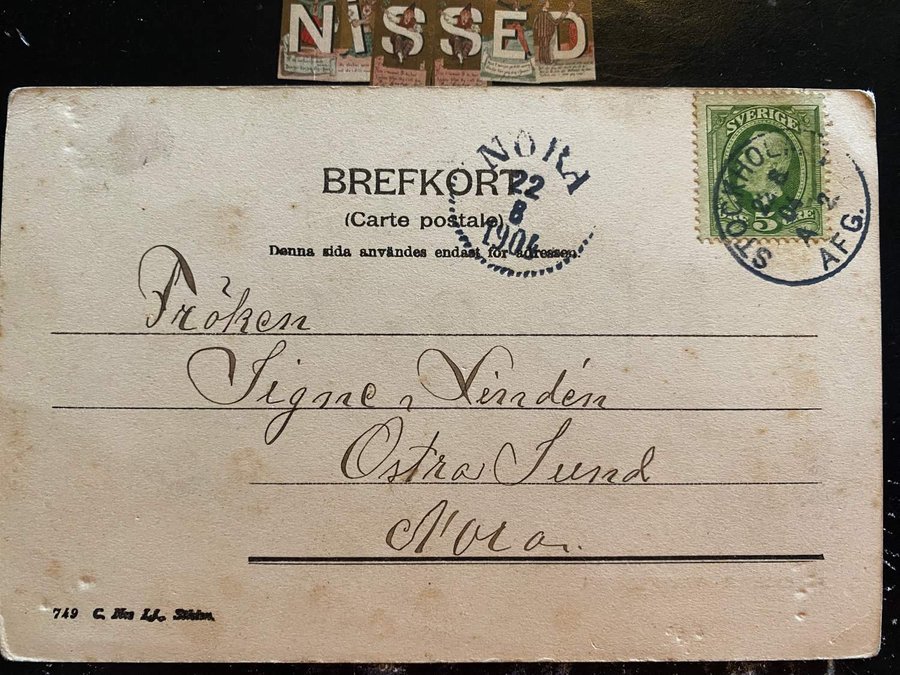 NISSED
BREFKORT
(Carte postale)
Denna sida användes endast för adressen.
NORA
22
8
1904
SVERIGE
5 ÖRE
STOCKHOLM
AFG.
Fröken
Signe Lindén
Östra Sund
Nora.
749